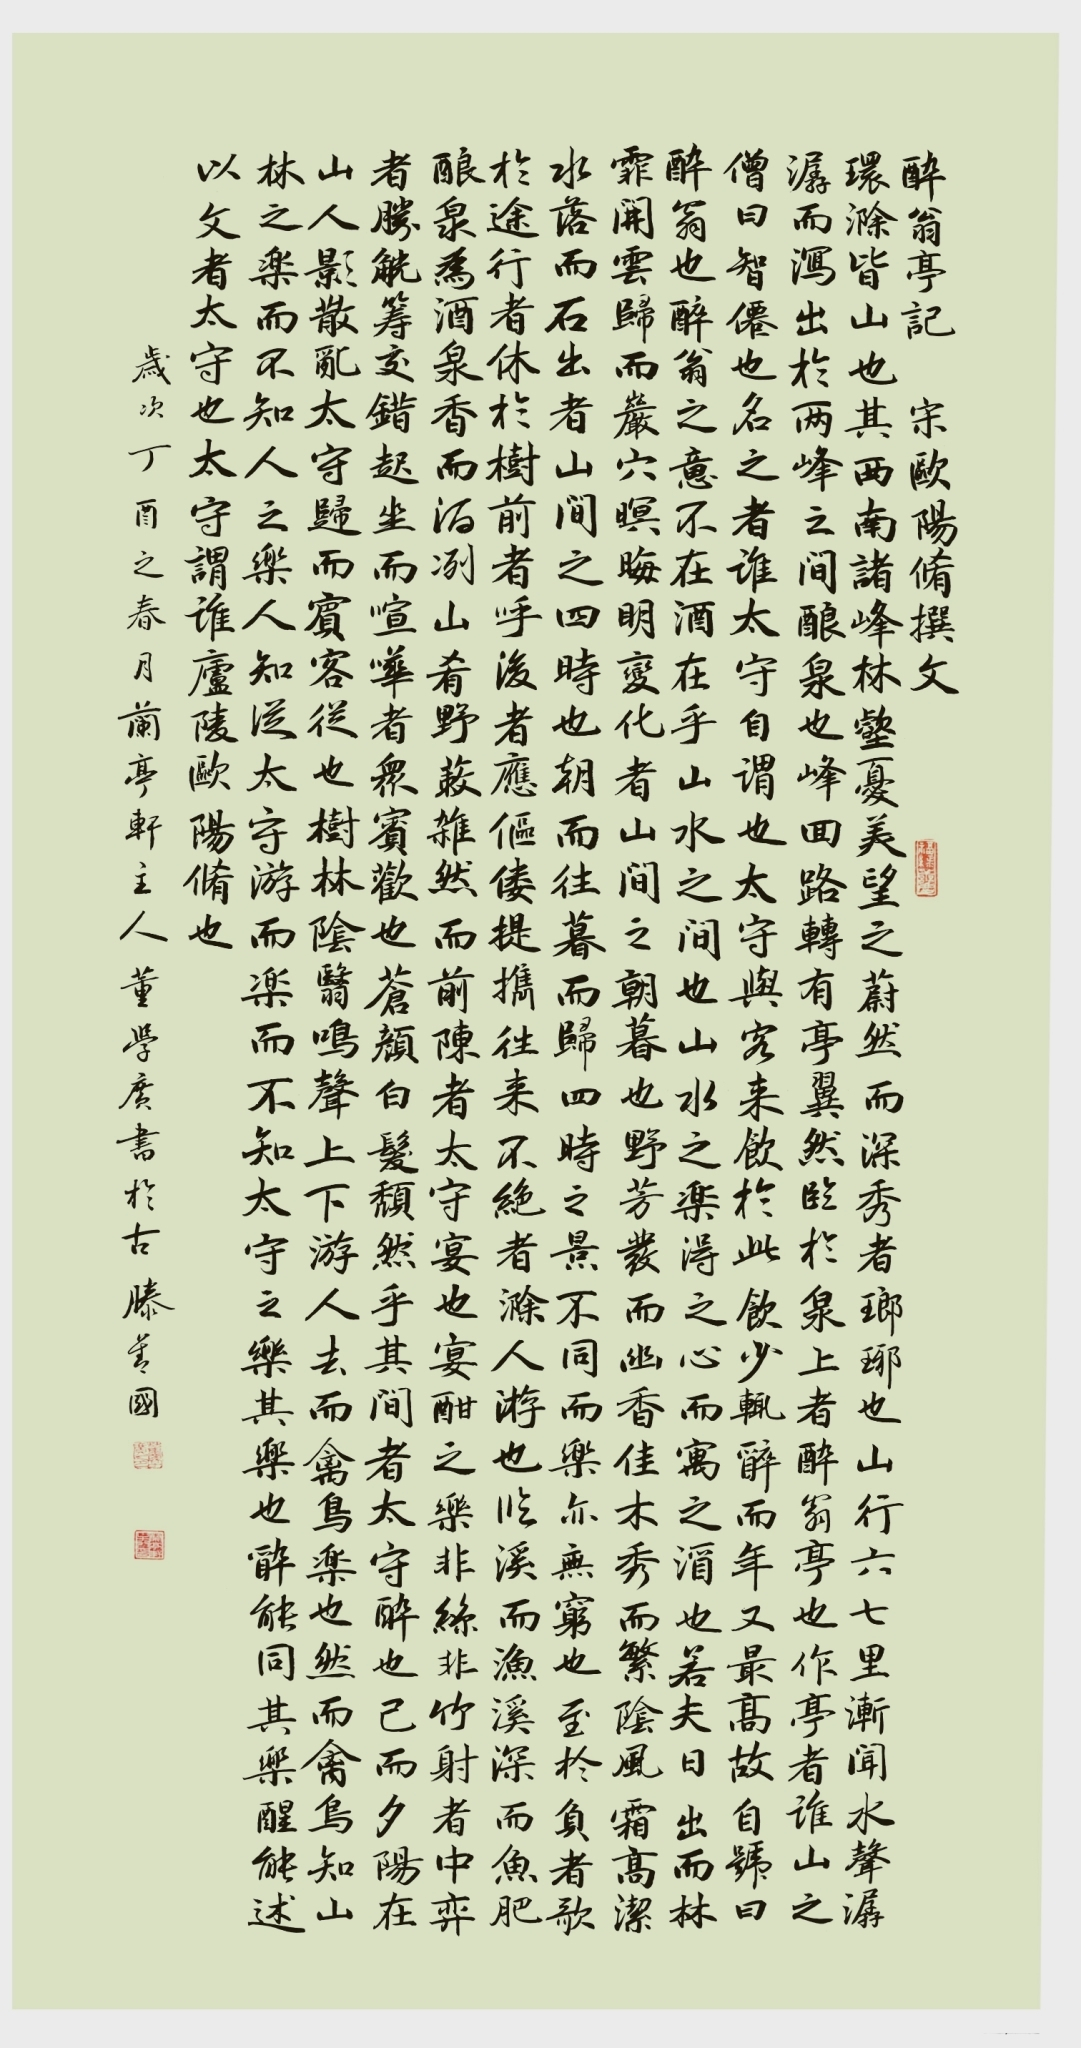 醉翁亭記　宋歐陽脩撰文
環滁皆山也其西南諸峰林壑憂美望之蔚然而深秀者瑯琊也山行六七里漸聞水聲潺
潺而瀉出於两峰之間酿泉也峰回路轉有亭翼然臨於泉上者醉翁亭也作亭者誰山之
僧曰智僊也名之者誰太守自謂也太守與客来飲於此飲少輒醉而年又最高故自號曰
醉翁也醉翁之意不在酒在乎山水之間也山水之楽得之心而寓之酒也若夫日出而林
霏開雲歸而巖穴暝晦明變化者山間之朝暮也野芳發而幽香佳木秀而繁陰風霜高潔
水落而石出者山間之四時也朝而往暮而歸四時之景不同而樂亦無窮也至於負者歌
於途行者休於樹前者呼後者應傴僂提攜往来不絶者滁人游也臨溪而漁溪深而魚肥
酿泉為酒泉香而酒洌山肴野蔌雜然而前陳者太守宴也宴酣之樂非絲非竹射者中弈
者勝觥籌交錯起坐而喧嘩者衆賓歡也蒼顏白髮頹然乎其間者太守醉也已而夕陽在
山人影散亂太守歸而賓客從也樹林陰翳鳴聲上下游人去而禽鳥楽也然而禽鳥知山
林之楽而不知人之樂人知從太守游而楽而不知太守之樂其樂也醉能同其樂醒能述
以文者太守也太守謂誰廬陵歐陽脩也
歲次丁酉之春月蘭亭軒主人董学廣書於古滕善國